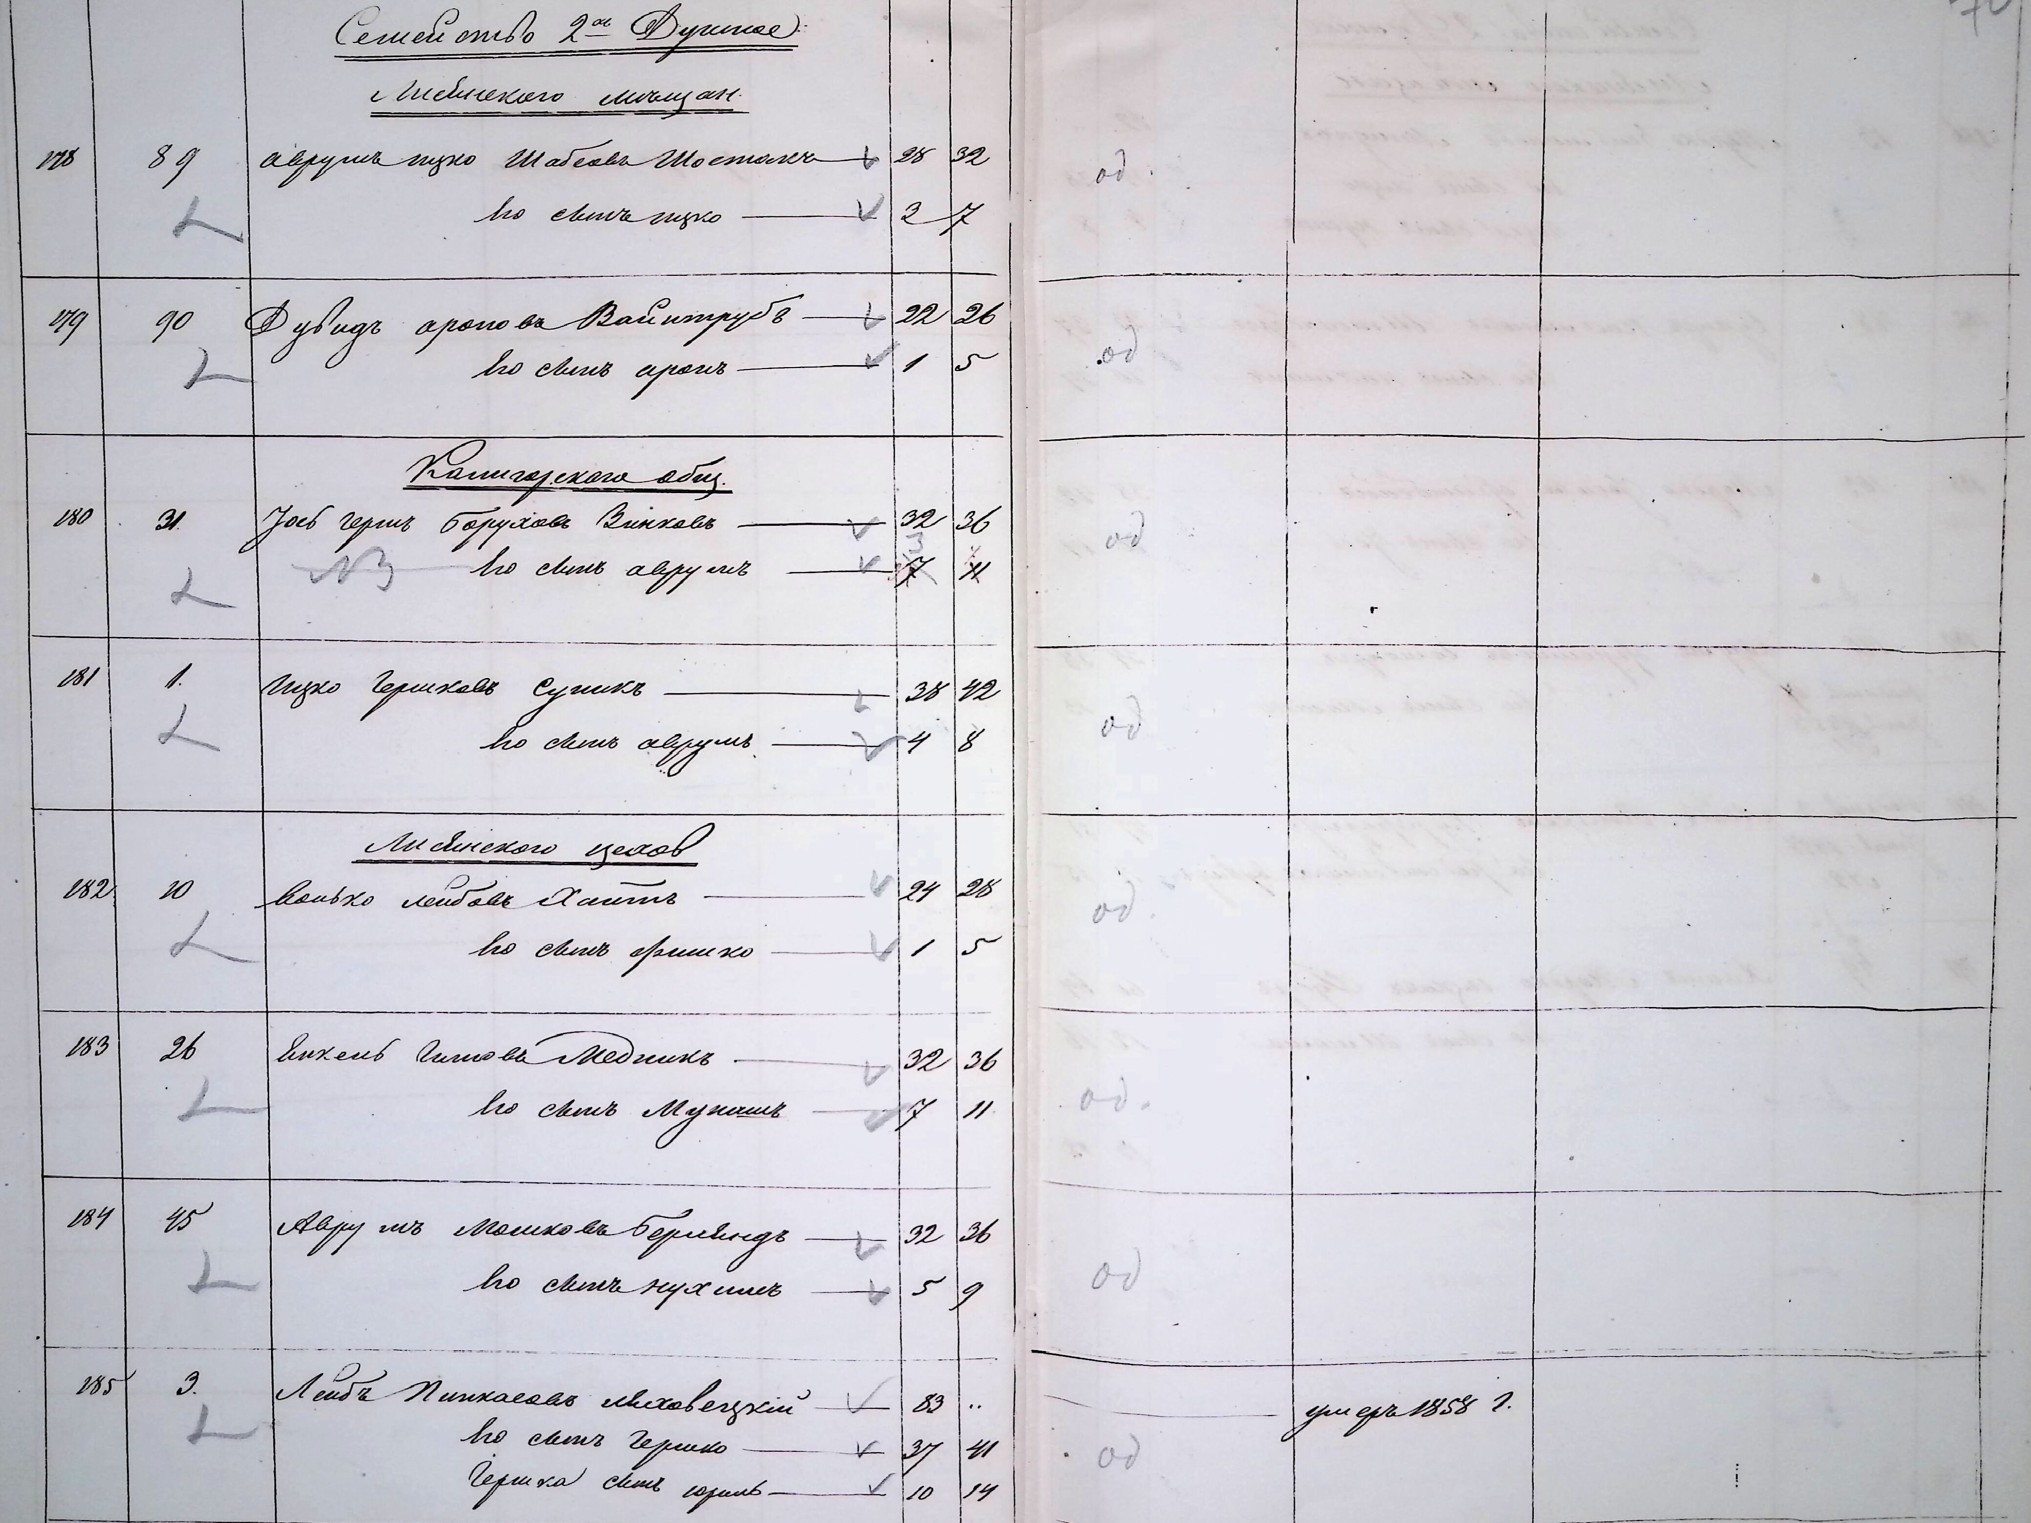 Семейство 2хъ Душное
Лисянского мещан.
178 89 Аврумъ ицко Шабсовъ Шостакъ 28 32 од
Его сынъ ицко 3 7
179 90 Дувидъ ароновъ Вайнтрубъ 22 26 од
Его сынъ аронъ 1 5
Калигорского общ.
180 31. Іосъ герш Боруховъ Зинковъ 32 36 од
№3 Его сынъ аврумъ 7 11
3
181 1. Ицко Гершковъ Супикъ 38 42 од
Его сынъ аврумъ 4 8
Лисянского цехов
182 10 Волько лейбовъ Хаитъ 24 28 од
Его сынъ сришко 1 5
183 26 Янкель Витовъ Медникъ 32 36 од.
Его сынъ Мунашъ 7 11
184 45 Аврумъ Мошковъ Берлендъ 32 36 од
Его сынъ нухимъ 5 9
185 3. Лейбъ Пинхасовъ Ляховецкій 83 .. умеръ 1858 г.
Его сынъ Гершко 37 41 од
Гершка сынъ сориль 10 14